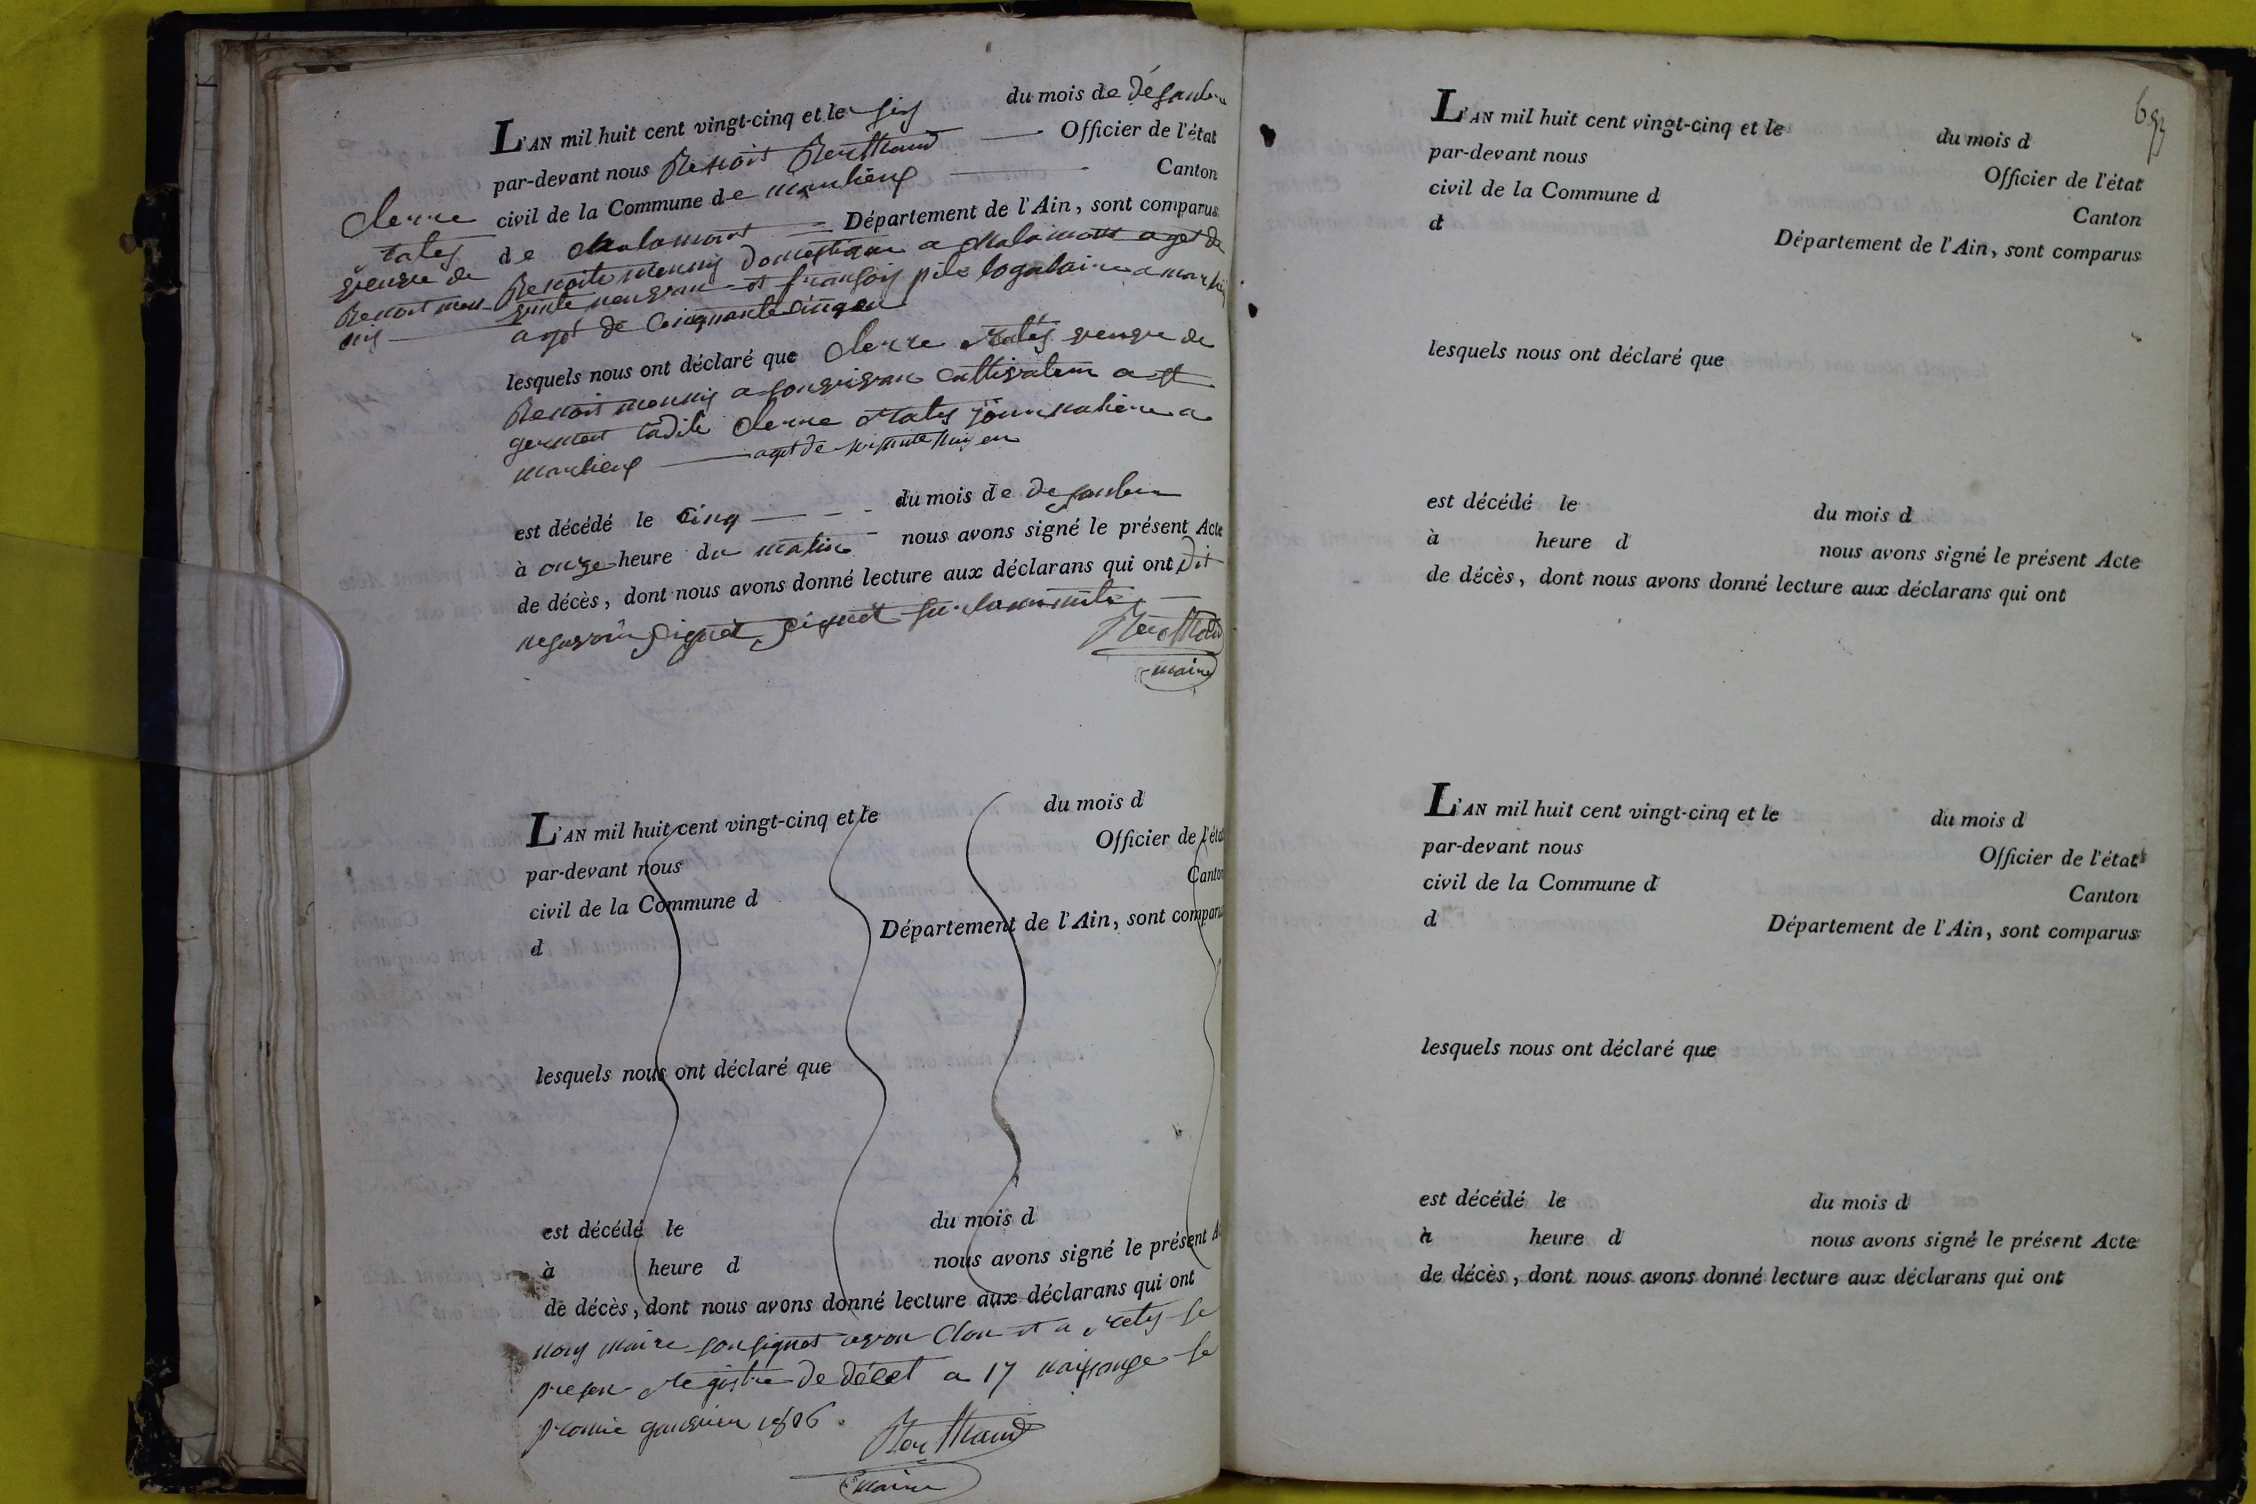 L'AN mil huit cent vingt-cinq et le six du mois de désanbre
par-devant nous Benoit Berthaud Officier de l'état
civil de la Commune de marlieux Canton
de Chalamont Département de l'Ain, sont comparus
Benoite monnis domestique a Chalamont aget de
neuvan et françois pile logataire a marlieux
aget de cinquante cinq an
lesquels nous ont déclaré que Clerre veuve de
Benoit monnis a cultivateur a st
germen ladite Clerre journalière a
marlieux aget de an
est décédé le cinq du mois de desanbre
à onze heure du matin nous avons signé le présent Acte
de décès, dont nous avons donné lecture aux déclarans qui ont dit
ne savoir signét signét sur la minute
Berthaud
maire
Clerre
veuve de
Benoit mon-
nis
L'AN mil huit cent vingt-cinq et le du mois d
par-devant nous Officier de l'état
civil de la Commune d Canton
d Département de l'Ain, sont comparus
lesquels nous ont déclaré que
est décédé le du mois d
à heure d nous avons signé le présent A
de décès, dont nous avons donné lecture aux déclarans qui ont
nous maire sousignét avon clou et a retes se
presen registre de décet a 17 naissange se
promié ganvier 1806
Berthaud
maire
L'AN mil huit cent vingt-cinq et le du mois d
par-devant nous Officier de l'état
civil de la Commune d Canton
d Département de l'Ain, sont comparus
lesquels nous ont déclaré que
est décédé le du mois d
à heure d nous avons signé le présent Acte
de décès, dont nous avons donné lecture aux déclarans qui ont
L'AN mil huit cent vingt-cinq et le du mois d
par-devant nous Officier de l'état
civil de la Commune d Canton
d Département de l'Ain, sont comparus
lesquels nous ont déclaré que
est décédé le du mois d
à heure d nous avons signé le présent Acte
de décès, dont nous avons donné lecture aux déclarans qui ont